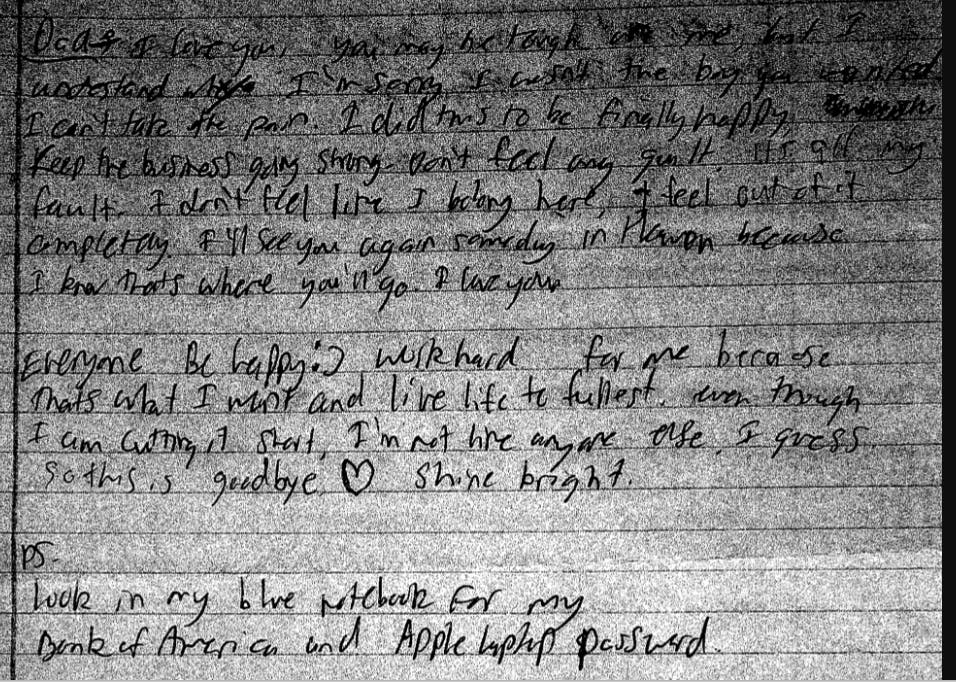 Dad I love you, you may be tough on me, but I
understand why I'm sorry I wasn't the boy you wanted
I can't take the pain. I did this to be finally happy,
Keep the business going strong. Don't feel any guilt its all my
fault. I don't feel like I belong here, I feel out of it
completely. I'll see you again someday in Heaven because
I know thats where you'll go. I love you

Everyone Be happy :) work hard for me because
thats what I want and live life to fullest. even though
I am cutting it short, I'm not like anyone else I guess
so this is goodbye ♡ Shine bright.

PS-
look in my blue notebook for my
Bank of America and Apple laptop password.